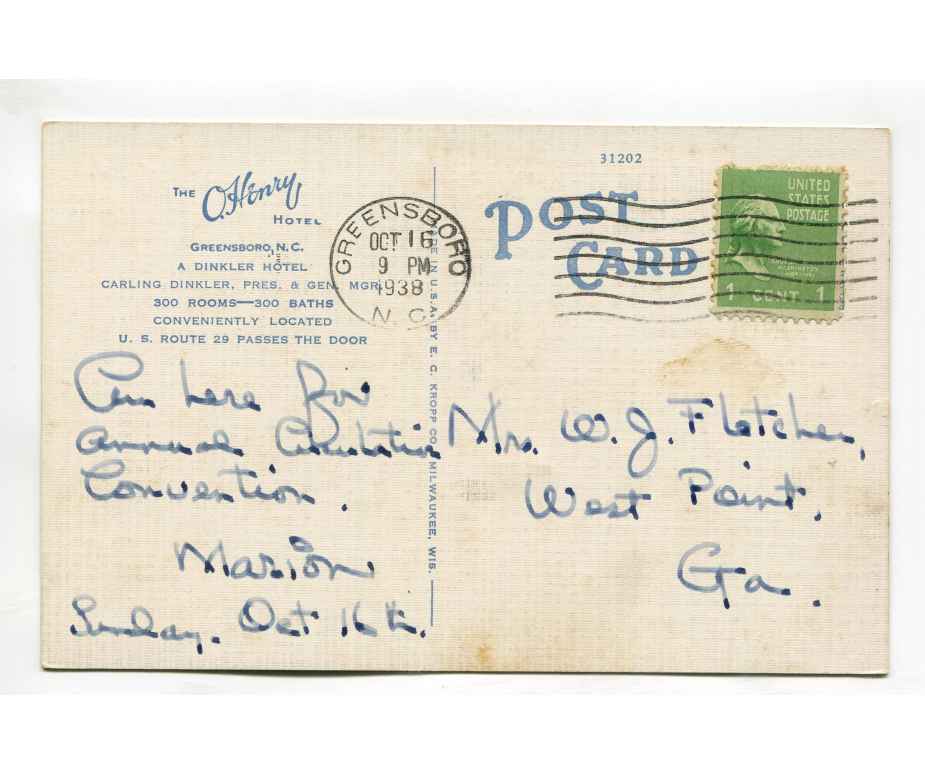 31202
THE O.Henry
HOTEL
GREENSBORO, N.C.
A DINKLER HOTEL
CARLING DINKLER, PRES. & GEN. MGR.
300 ROOMS—300 BATHS
CONVENIENTLY LOCATED
U. S. ROUTE 29 PASSES THE DOOR
GREENSBORO
OCT 16
9 PM
1938
N.C.
POST
CARD
UNITED
STATES
POSTAGE
1 CENT 1
Am here for
annual Circulation
Convention.
Marion
Sunday. Oct 16th.
IN U.S.A. BY E. C. KROPP CO. MILWAUKEE, WIS.
Mrs. W. J. Fletcher,
West Point,
Ga.